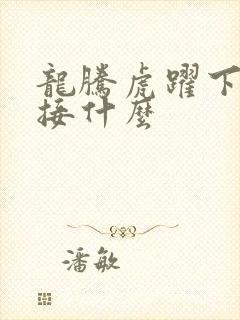 龍騰虎躍下
接什麼
潘敏